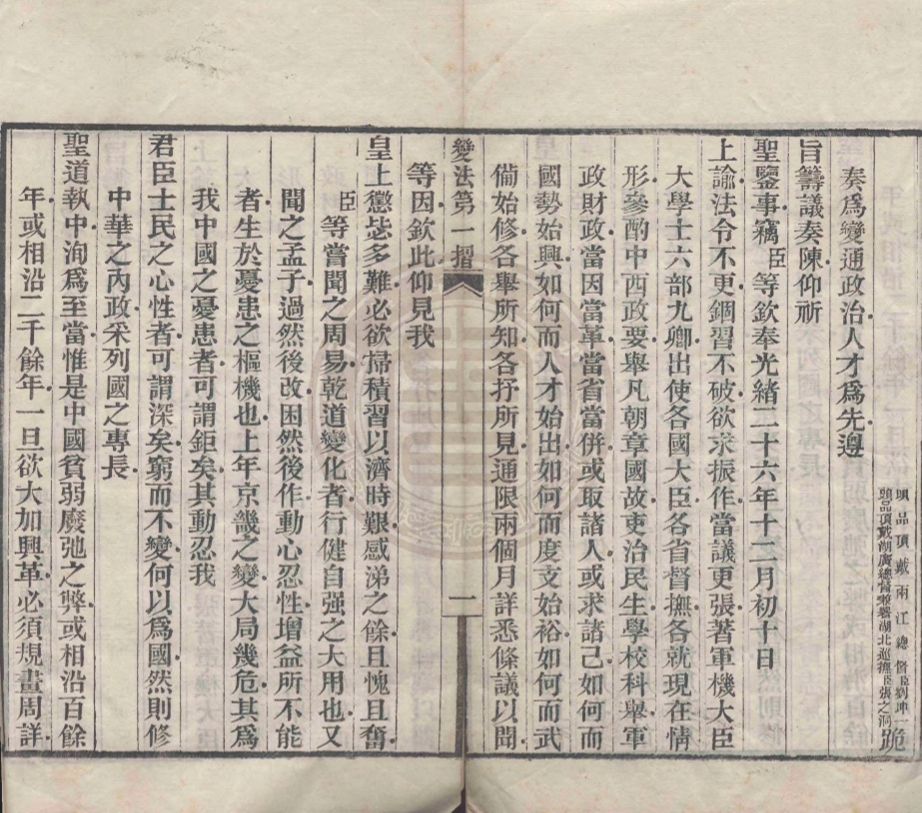 頭品頂戴兩江總督臣劉坤一
頭品頂戴湖廣總督兼署湖北巡撫臣張之洞跪
奏爲變通政治人才爲先遵
旨籌議奏陳仰祈
聖鑒事竊臣等欽奉光緒二十六年十二月初十日
上諭法令不更錮習不破欲求振作當議更張著軍機大臣
大學士六部九卿出使各國大臣各省督撫各就現在情
形參酌中西政要舉凡朝章國故吏治民生學校科舉軍
政財政當因當革當省當併或取諸人或求諸己如何而
國勢始興如何而人才始出如何而度支始裕如何而武
備始修各舉所知各抒所見通限兩個月詳悉條議以聞
等因欽此仰見我
變法第一摺
一
皇上懲毖多難必欲掃積習以濟時艱感涕之餘且愧且奮
臣等嘗聞之周易乾道變化者行健自强之大用也又
聞之孟子過然後改困然後作動心忍性增益所不能
者生於憂患之樞機也上年京畿之變大局幾危其爲
我中國之憂患者可謂鉅矣其動忍我
君臣士民之心性者可謂深矣窮而不變何以爲國然則修
中華之內政采列國之專長
聖道執中洵爲至當惟是中國貧弱廢弛之弊或相沿百餘
年或相沿二千餘年一旦欲大加興革必須規畫周詳